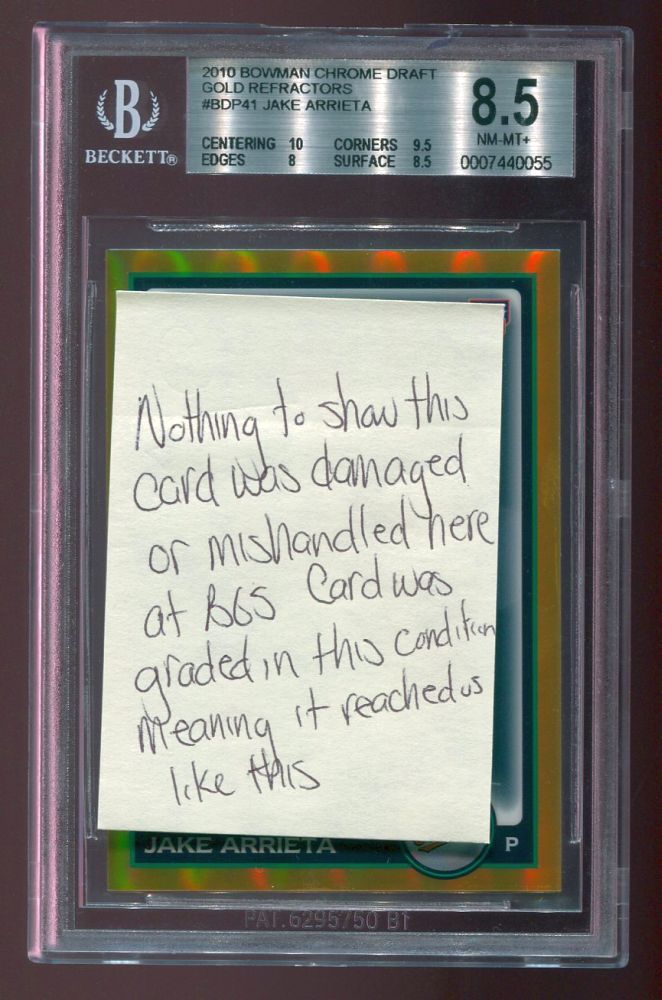 2010 BOWMAN CHROME DRAFT
GOLD REFRACTORS
#BDP41 JAKE ARRIETA
CENTERING 10 CORNERS 9.5
EDGES 8 SURFACE 8.5
8.5
NM-MT+
0007440055
B
BECKETT®
Nothing to show this
card was damaged
or mishandled here
at BGS Card was
graded in this condition
Meaning it reached us
like this
JAKE ARRIETA
P
PAT.6295750 B1